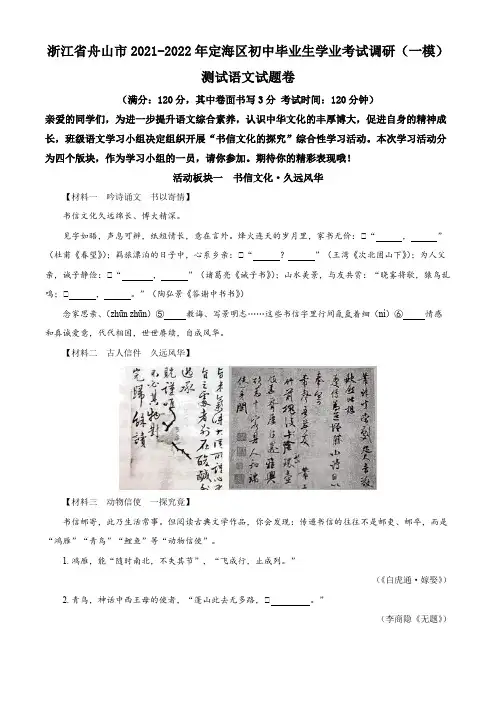 浙江省舟山市2021-2022年定海区初中毕业生学业考试调研（一模）
测试语文试题卷
（满分：120分，其中卷面书写3分 考试时间：120分钟）
亲爱的同学们，为进一步提升语文综合素养，认识中华文化的丰厚博大，促进自身的精神成
长，班级语文学习小组决定组织开展“书信文化的探究”综合性学习活动。本次学习活动分
为四个版块，作为学习小组的一员，请你参加。期待你的精彩表现哦！
活动板块一 书信文化·久远风华
【材料一 吟诗诵文 书以寄情】
书信文化久远绵长、博大精深。
见字如晤，声息可辨，纸短情长，意在言外。烽火连天的岁月里，家书无价：□“ ， ”
（杜甫《春望》）；羁旅漂泊的日子中，心系乡亲：□“ ？ ”（王湾《次北固山下》）；为人父
亲，诫子静俭：□“ ， ”（诸葛亮《诫子书》）；山水美景，与友共赏：“晓雾将歇，猿鸟乱
鸣；□ ， 。”（陶弘景《答谢中书书》）
念家思亲、（zhūn zhūn）⑤ 教诲、写景明志……这些书信字里行间氤氲着细（nì）⑥ 情感
和真诚爱意，代代相因，世世赓续，自成风华。
【材料二 古人信件 久远风华】
【材料三 动物信使 一探究竟】
书信邮寄，此乃生活常事。但阅读古典文学作品，你会发现：传递书信的往往不是邮吏、邮卒，而是
“鸿雁”“青鸟”“鲤鱼”等“动物信使”。
1. 鸿雁，能“随时南北，不失其节”，“飞成行，止成列。”
（《白虎通·嫁娶》）
2. 青鸟，神话中西王母的使者，“蓬山此去无多路，□ 。”
（李商隐《无题》）